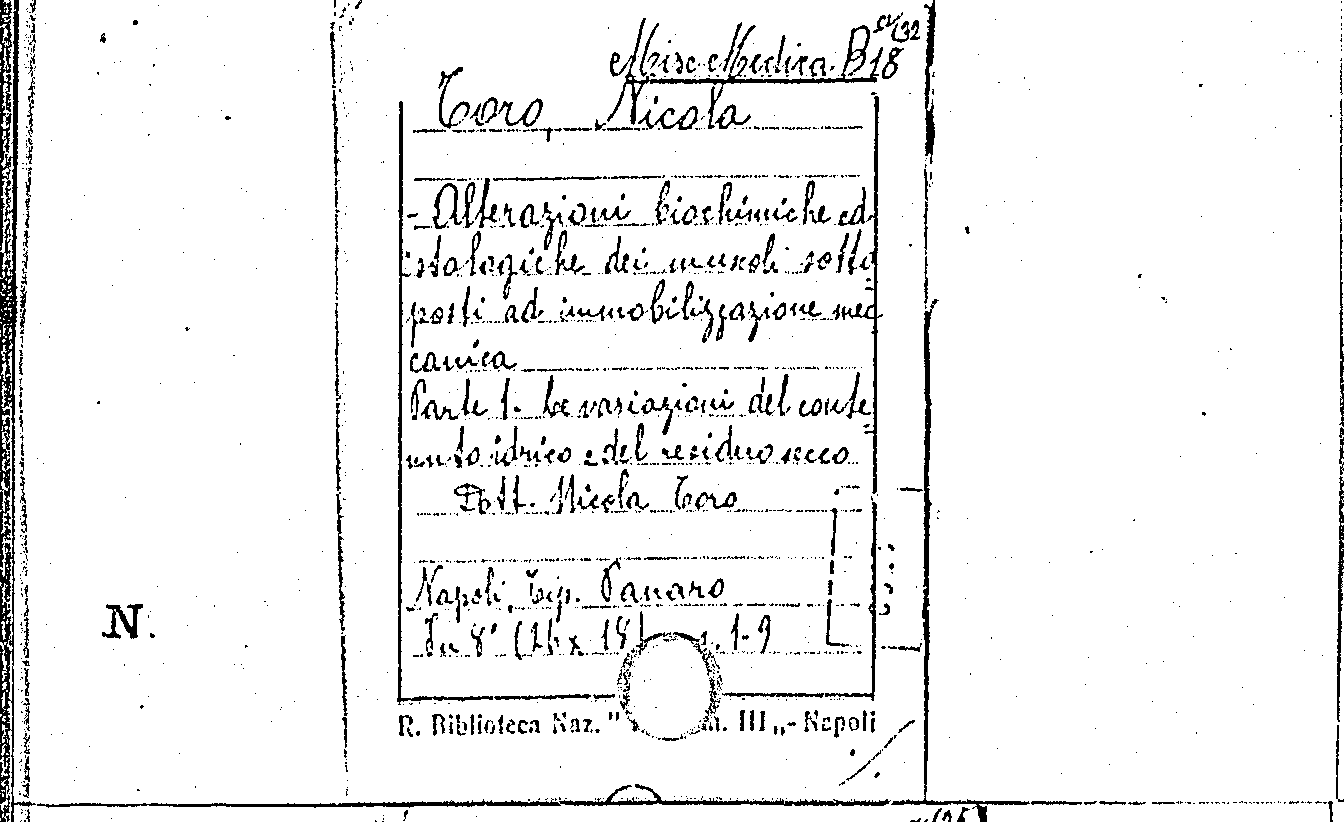 Misc Medica B18 (32
Toro, Nicola
- Alterazioni biochimiche ed
istologiche dei muscoli sotto
posti ad immobilizzazione mec
canica
Parte 1. Le variazioni del conte
nuto idrico e del residuo secco
Dott. Nicola Toro
Napoli, Tip. Panaro
In 8° (26 x 18) 1-9
N.
R. Biblioteca Naz. " m. III „ - Napoli